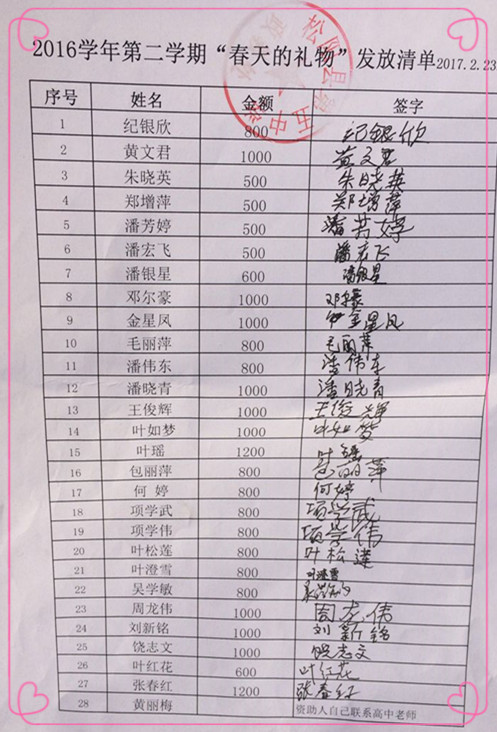 2016学年第二学期“春天的礼物”发放清单2017.2.23
序号 姓名 金额 签字
1 纪银欣 800 纪银欣
2 黄文君 1000 黄文君
3 朱晓英 500 朱晓英
4 郑增萍 500 郑增萍
5 潘芳婷 500 潘芳婷
6 潘宏飞 500 潘宏飞
7 潘银星 600 潘银星
8 邓尔豪 1000
9 金星凤 1000 金星凤
10 毛丽萍 800 毛丽萍
11 潘伟东 800 潘伟东
12 潘晓青 1000 潘晓青
13 王俊辉 1000 王俊辉
14 叶如梦 1000 叶如梦
15 叶瑶 1200 叶瑶
16 包丽萍 800 包丽萍
17 何婷 800 何婷
18 项学武 800 项学武
19 项学伟 800 项学伟
20 叶松莲 800 叶松莲
21 叶澄雪 800 叶澄雪
22 吴学敏 800
23 周龙伟 1000 周龙伟
24 刘新铭 1000 刘新铭
25 饶志文 1000 饶志文
26 叶红花 600 叶红花
27 张春红 1200 张春红
28 黄丽梅 资助人自己联系高中老师